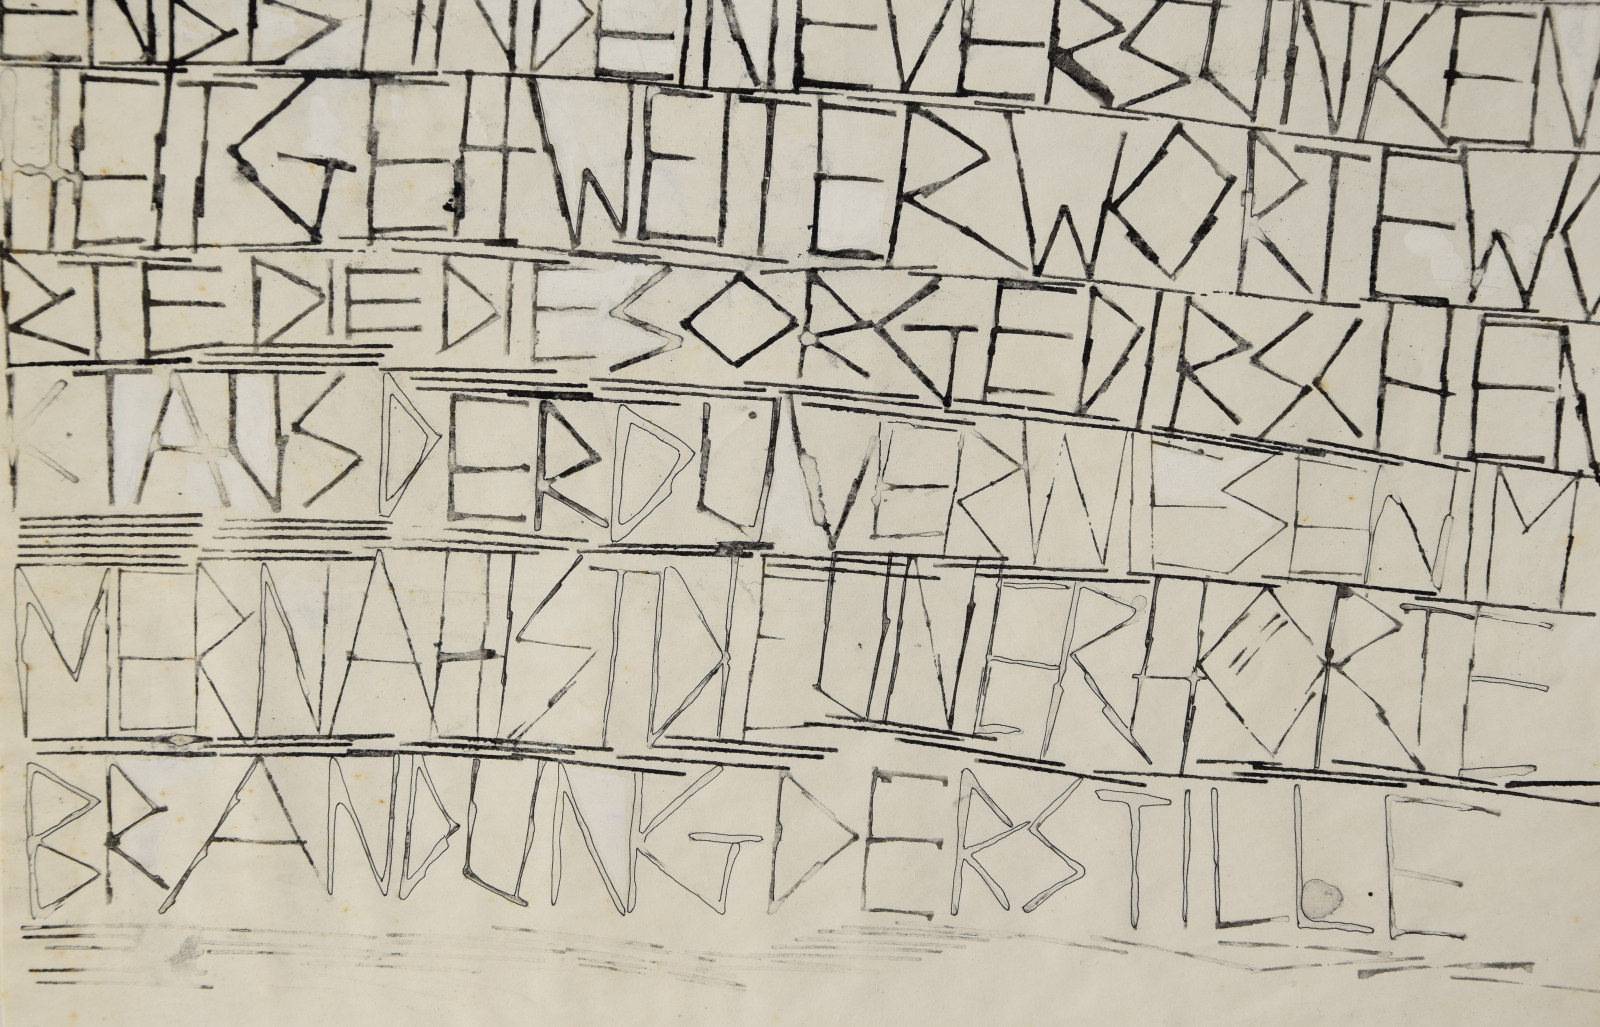 INDEINEVERSUNKEN
HEITGEHWEITERWORTEWO
RTEDIEDIESORGEDIRSCHEN
KTAUSDERDUVERWIESENIM
MERNAHSTDIEUNERHÖRTE
BRANDUNGDERSTILLE